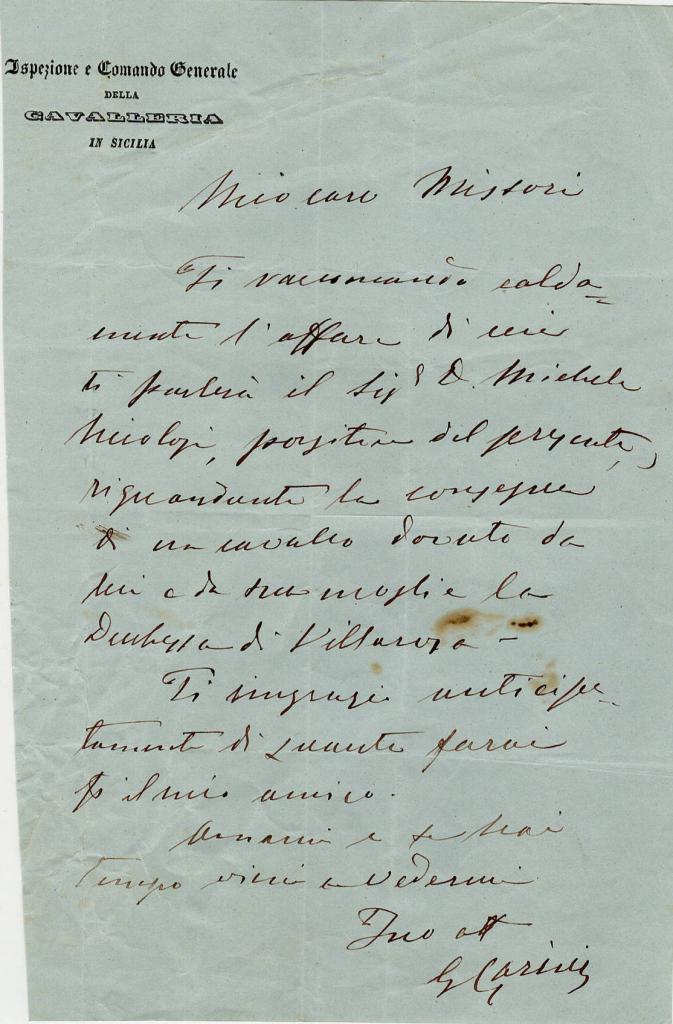 Ispezione e Comando Generale
DELLA
CAVALLERIA
IN SICILIA
Mio caro Missori
Ti raccomando calda=
mente l'affare di cui
ti parlerà il Sigr D. Michele
porgitore del presente,
riguardante la consegna
di un cavallo dovuto da
lui e da sua moglie la
Duchessa di Villarosa –
Ti ringrazio anticipa-
tamente di quanto farai
p il mio amico.
Amami e se hai
tempo vieni a vedermi
Tuo
G Carini